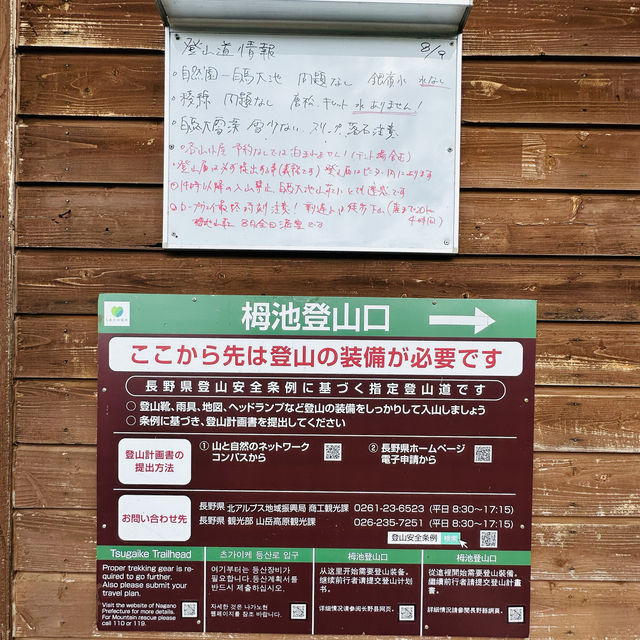 登山道情報 8/9
・自然園ー白馬大池 問題なし 銀嶺水 水なし
・稜線 問題なし 唐松、キレット 水ありません!
・白馬大雪渓 雪少ない、スリップ、落石注意
・登山小屋 予約なしでは泊まれません!(テント場含む)
・登山届は必ず提出する事(義務です) 登山届はセンター内にあります
・14時以降の入山禁止、白馬大池山荘にとても迷惑です
・ロープウェイ最終時刻注意!
栂池山荘 8月全日満室です
栂池登山口
ここから先は登山の装備が必要です
長野県登山安全条例に基づく指定登山道です
○ 登山靴、雨具、地図、ヘッドランプなど登山の装備をしっかりして入山しましょう
○ 条例に基づき、登山計画書を提出してください
登山計画書の
提出方法
① 山と自然のネットワーク
コンパスから
② 長野県ホームページ
電子申請から
お問い合わせ先
長野県 北アルプス地域振興局 商工観光課 0261-23-6523 (平日 8:30~17:15)
長野県 観光部 山岳高原観光課 026-235-7251 (平日 8:30~17:15)
登山安全条例 検索
Tsugaike Trailhead
Proper trekking gear is re-
quired to go further.
Also please submit your
travel plan.
Visit the website of Nagano
Prefecture for more details.
For Mountain rescue please
call 110 or 119.
츠가이케 등산로 입구
여기부터는 등산장비가
필요합니다.등산계획서를
반드시 제출하십시오.
자세한 것은 나가노현
웹페이지를 참조 바랍니다.
栂池登山口
从这里开始需要登山装备。
继续前行者请提交登山计划
书。
详细情况请参阅长野县网页.
栂池登山口
從這裡開始需要登山裝備。
繼續前行者請提交登山計畫
書。
詳細情況請參閱長野縣網頁.